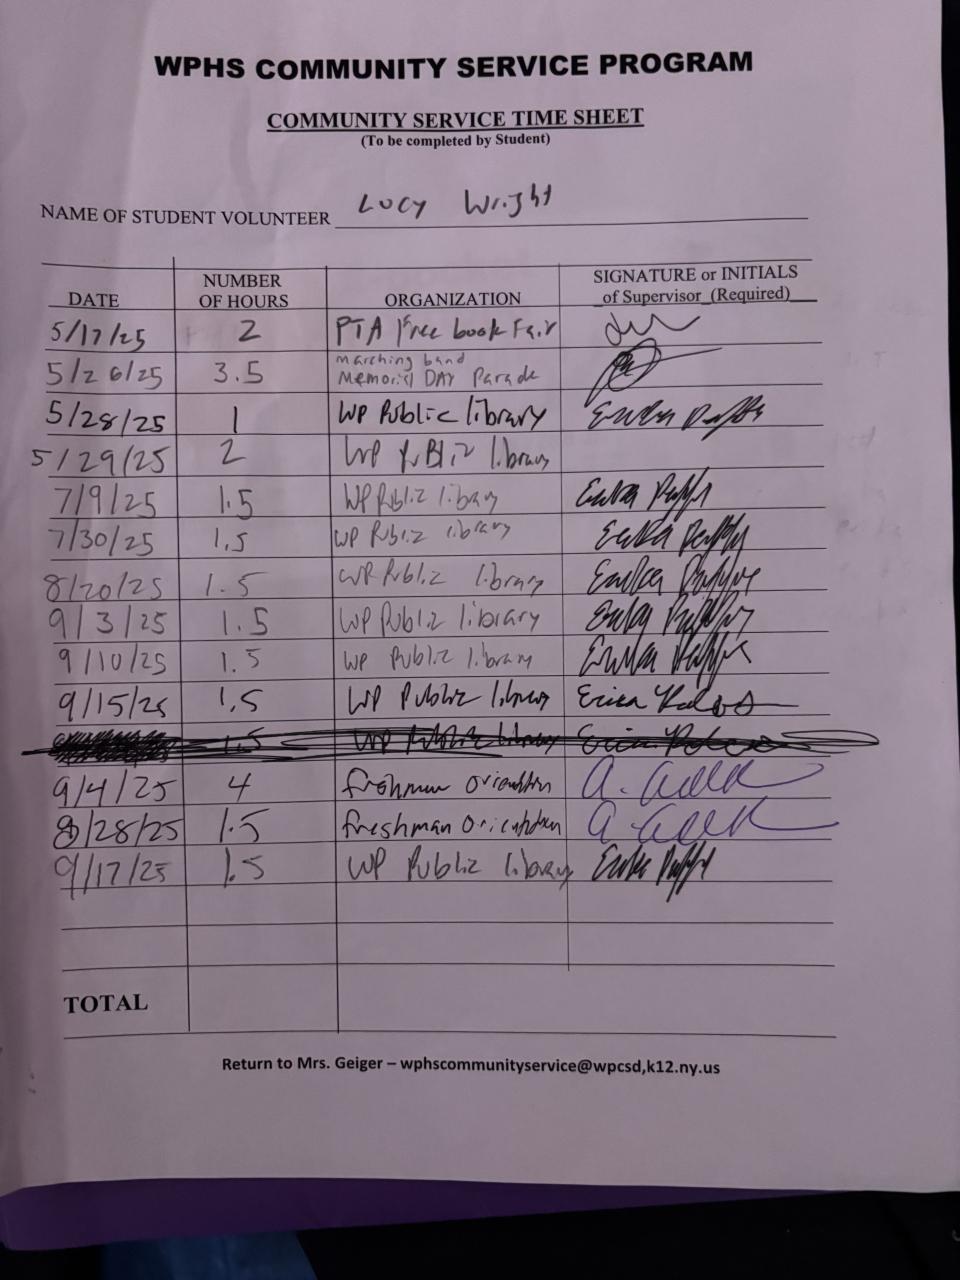 WPHS COMMUNITY SERVICE PROGRAM
COMMUNITY SERVICE TIME SHEET
(To be completed by Student)
NAME OF STUDENT VOLUNTEER Lucy Wright
DATE NUMBER OF HOURS ORGANIZATION SIGNATURE or INITIALS of Supervisor (Required)
5/17/25 2 PTA Free book Fair
5/26/25 3.5 Marching band Memorial DAY Parade
5/28/25 1 WP Public library
5/29/25 2 WP Public library
7/9/25 1.5 WP Public library
7/30/25 1.5 WP Public library
8/20/25 1.5 WP Public library
9/3/25 1.5 WP Public library
9/10/25 1.5 WP Public library
9/15/25 1.5 WP Public library Erica
1.5 WP Public library
9/4/25 4 freshman Orientation A.
8/28/25 1.5 freshman Orientation A.
9/17/25 1.5 WP Public library
TOTAL
Return to Mrs. Geiger – wphscommunityservice@wpcsd,k12.ny.us